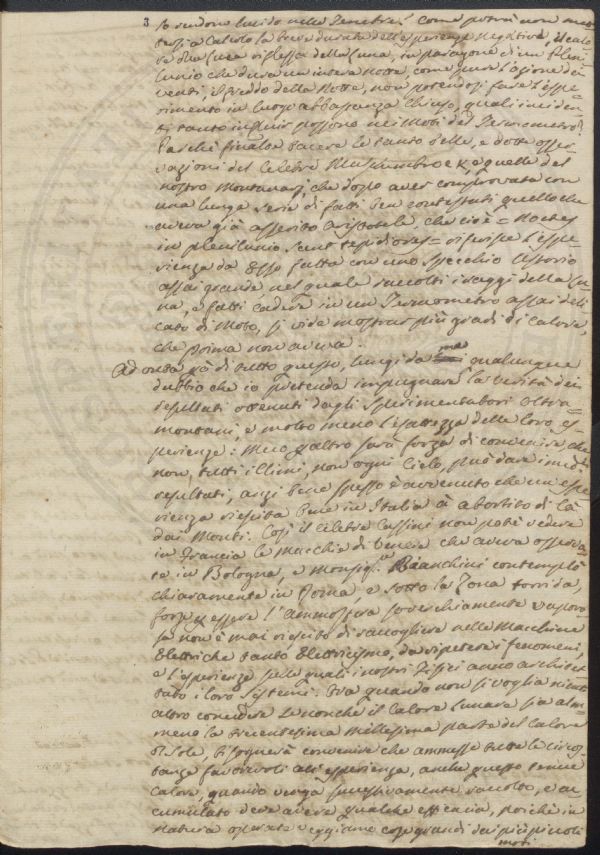 3 lo rendono lucido nelle Tenebre? Come potrà non met=
tersi a calcolo la breve durata dell'esperienze negative, il calo=
re della luce riflessa della Luna, in paragone di un Pleni=
lunio che dura un intera notte, come pure l'azione de
venti, il freddo della Notte, non potendosi fare l'espe=
rimento in luogo abbastanza chiuso, quali inciden=
ti tanto influir possono nei Moti del Termometro?
Perchè finalm tacere le tanto belle, e dotte osser=
vazioni del celebre Muschembroek, e quelle del
nostro Montanari, che dopo aver comprovata con
una lunga serie di fatti ben contestati quello che
aveva già asserito Aristotele, che cioè = Noctes
in plenilunio sunt tepidiores = riferisce l'espe=
rienza da Esso fatta con uno specchio Ustorio
assai grande nel quale raccolti i raggi della Lu=
na, e fatti cadere in un Termometro assai deli=
cato di Moto, si vide mostrar più gradi di calore,
che prima non aveva.
Ad onta pò di tutto questo, lungi da me qualunque
dubbio che io pretenda impugnare la verità dei
resultati ottenuti dagli Sperimentatori Oltra=
montani, e molto meno l'esattezza delle loro es=
perienze: Meco altro sarà forza di convenire che
non tutti i Climi, non ogni Cielo, può dare i med
resultati, anzi bene spesso è avvenuto che un espe=
rienza riescita bene in Italia à abortito di là
dai Monti. Così il celebre Cassini non potè vedere
in Francia le Macchie di Venere che aveva osserva=
te in Bologna, e Monsig. Bianchini contemplò
chiaramente in Roma, e sotto la Zona torrida,
forse p essere l'ammosfera soverchiamente vaporo=
sa non è mai riescito di raccogliere nelle Macchine
Elettriche tanto Elettricismo, da ripetere i fenomeni,
e l'esperienze sulle quali i nostri Fisici anno architet=
tato i loro sistemi. Ora quando non si voglia
altro concedere se non che il Calore Lunare sia al=
meno la trecentesima Millesima parte del Calore
di Sole, bisognerà convenire che ammesse tutte le circos=
tanze favorevoli all'esperienza, anche questo tenue
Calore, quando venga successivamente raccolto, e ac=
cumulato deve avere qualche efficacia, poichè in
Natura operata veggiamo cose grandi dai più piccoli
moti